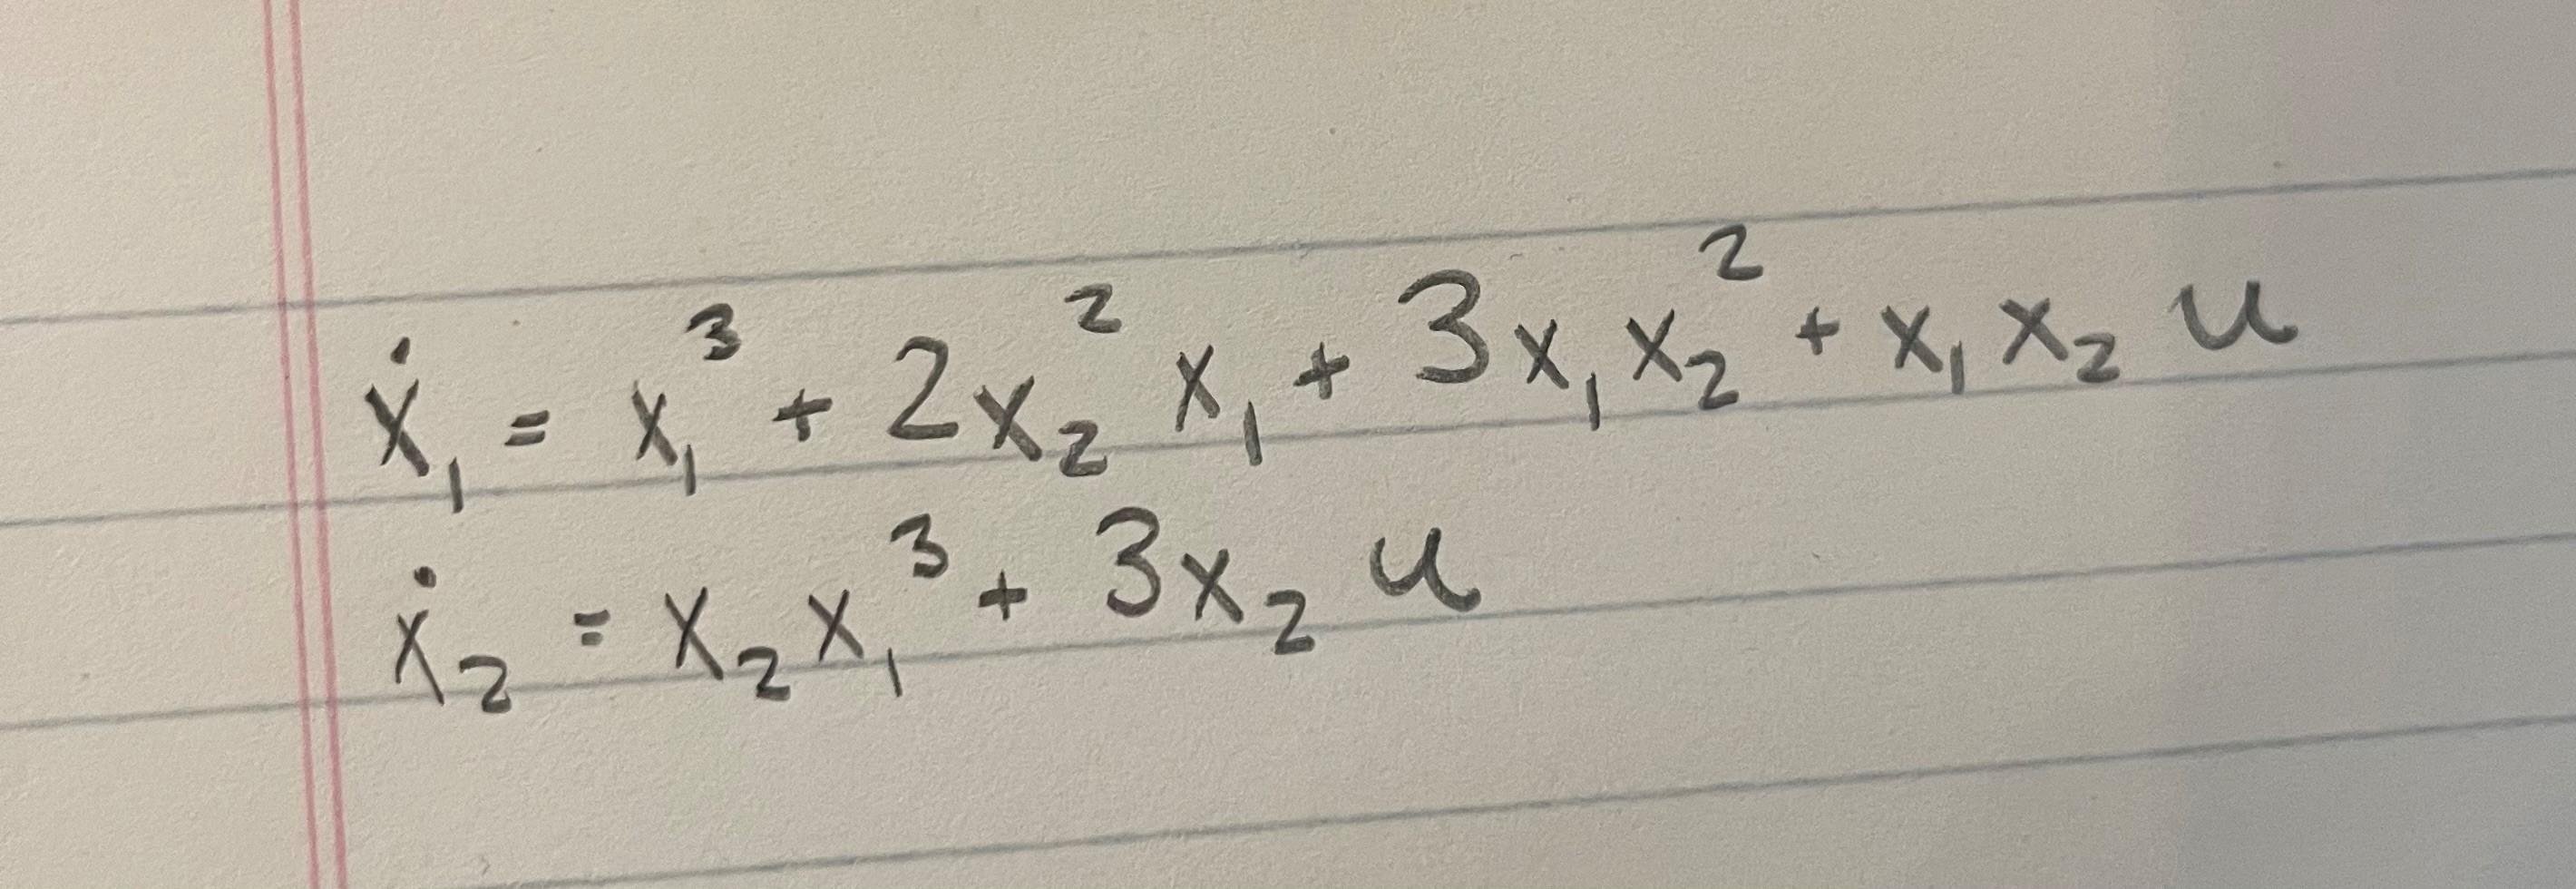 ẋ₁ = x₁³ + 2x₂²x₁ + 3x₁x₂² + x₁x₂u
ẋ₂ = x₂x₁³ + 3x₂u